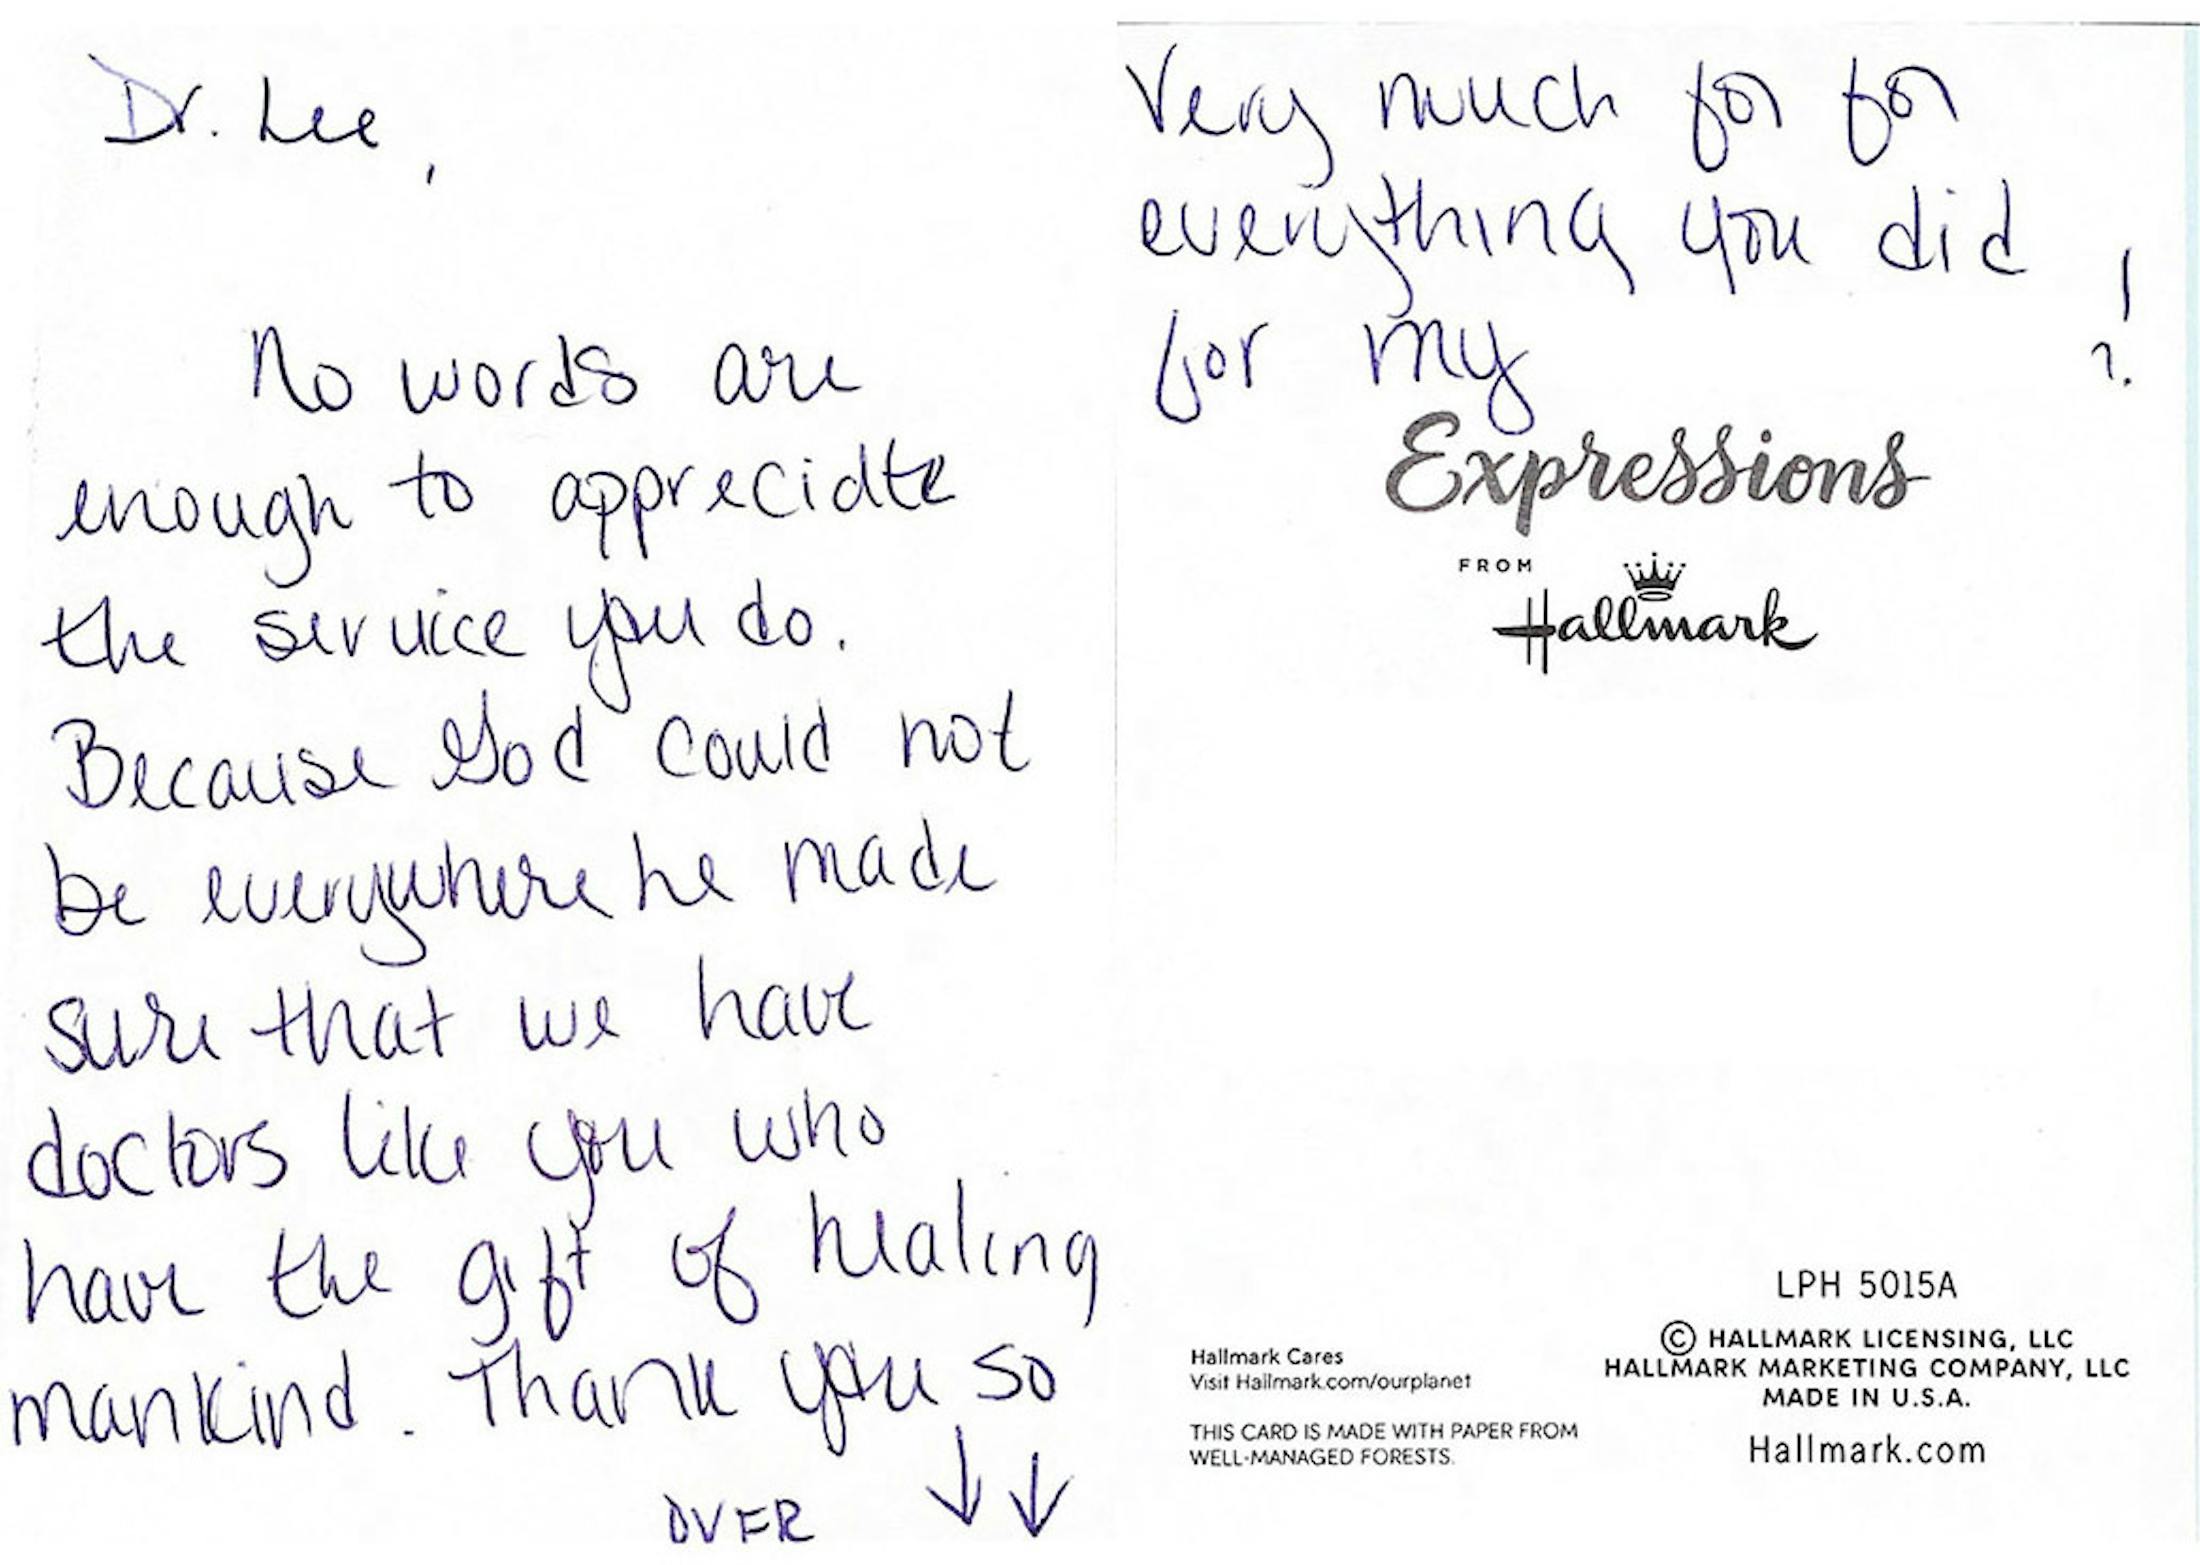 Dr. Lee,
No words are
enough to appreciate
the service you do.
Because God could not
be everywhere he made
sure that we have
doctors like you who
have the gift of healing
mankind. Thank you so
OVER ↓ ↓
Very much for for
everything you did
for my
Expressions
FROM
Hallmark
Hallmark Cares
Visit Hallmark.com/ourplanet
THIS CARD IS MADE WITH PAPER FROM
WELL-MANAGED FORESTS.
LPH 5015A
© HALLMARK LICENSING, LLC
HALLMARK MARKETING COMPANY, LLC
MADE IN U.S.A.
Hallmark.com